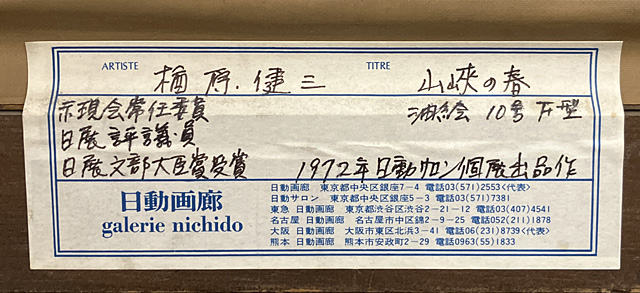 ARTISTE 楢原健三 TITRE 山峡の春
示現会常任委員 油絵 10号 F型
日展評議員
日展文部大臣賞受賞 1972年日動サロン個展出品作
日動画廊
galerie nichido
日動画廊 東京都中央区銀座7-4 電話03(571)2553<代表>
日動サロン 東京都中央区銀座5-3 電話03(571)7381
東急 日動画廊 東京都渋谷区渋谷2-21-12 電話03(407)4541
名古屋 日動画廊 名古屋市中区錦2-9-25 電話052(211)1878
大阪 日動画廊 大阪市東区北浜3-41 電話06(231)8739<代表>
熊本 日動画廊 熊本市安政町2-29 電話0963(55)1833